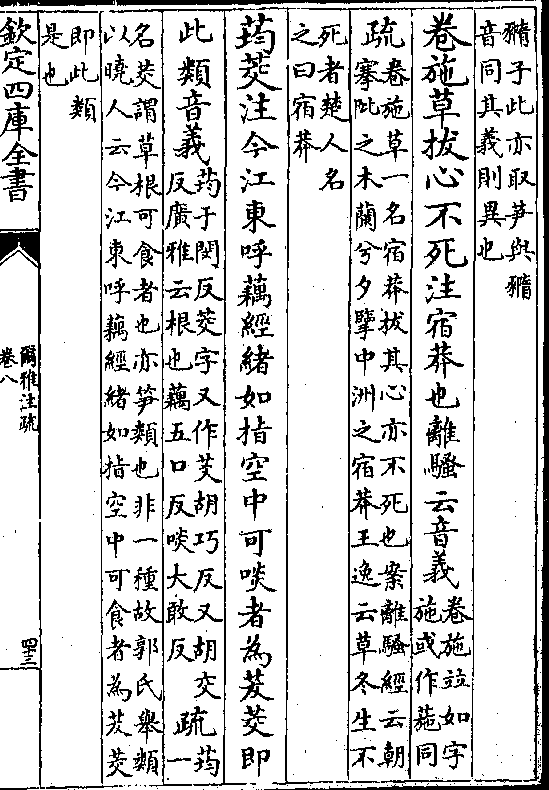 䔺子此亦取笋與䔺
音同其義則異也
卷施草拔心不死注宿莽也離騷云音義
卷施竝如字
施或作葹同
疏
卷施草一名宿莽拔其心亦不死也案離騷經云朝
搴阰之木蘭兮夕擥中洲之宿莽王逸云草冬生不
死者楚人名
之曰宿莽
荺茭注今江東呼藕經緒如指空中可啖者為茇茭即
此類音義
荺于閔反茭字又作芰胡巧反又胡交
反廣雅云根也藕五口反啖大敢反
疏
荺一
名茭謂草根可食者也亦笋類也非一種故郭氏舉類
以曉人云今江東呼藕經緒如指空中可食者為茇茭
即此類
是也
欽定四庫全書
爾雅注疏
卷八
四十三